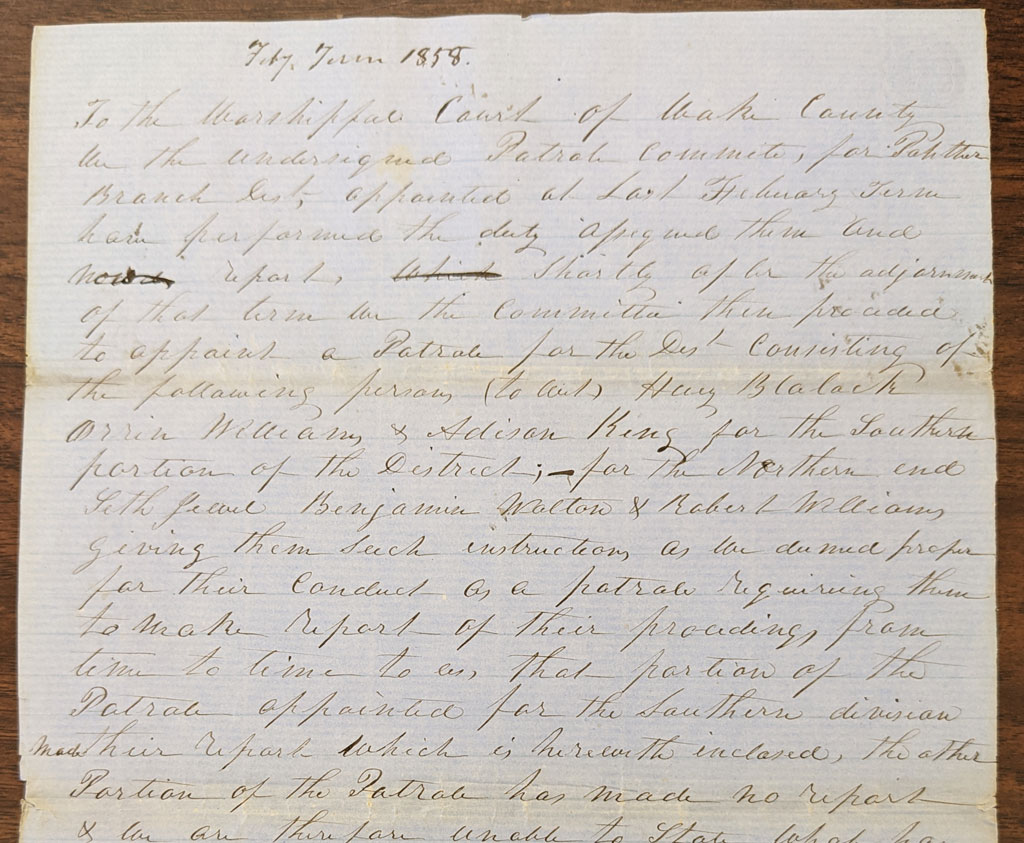 Feby. Term 1858.
To the Worshipful Court of Wake County
We the undersigned Patrole Committe, for Panther
Branch Dist, appointed at Last February Term
have performed the duty assigned them and
report, Shortly after the adjornment
of that term we the Committee then proceded
to appoint a Patrole for the Dist Consisting of
the following persons (to wit) Blalock
Orrin Williams & Adison King for the Southern
portion of the District; – for the Northern end
Seth Benjamin Walton & Robert Williams
giving them such instructions as we deemed proper
for their Conduct as a patrole requireing them
to make report of their procedings from
time to time to us, that portion of the
Patrole appointed for the Southern division
made their report which is herewith inclosed, the other
Portion of the Patrole has made no report
& we are therefore unable to State what